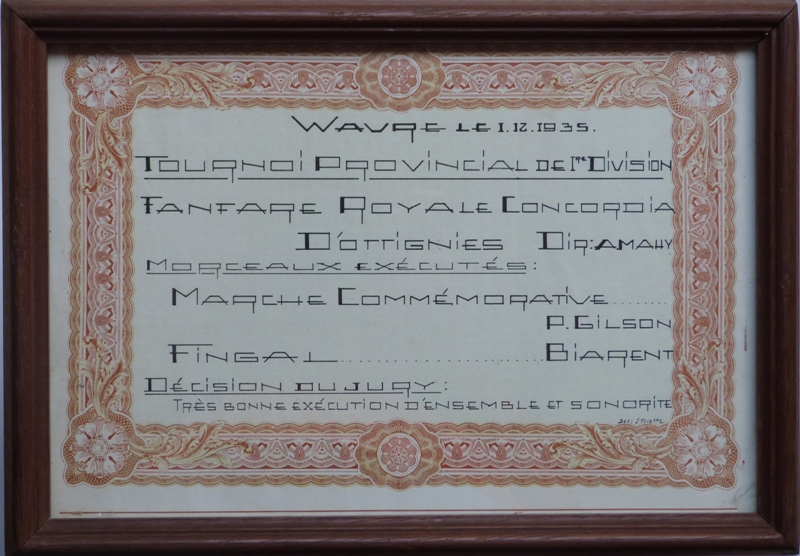 Wavre le 1.12.1935.
Tournoi Provincial de 1re Division
Fanfare Royale Concordia
D'Ottignies Dir: A. Mahy
Morceaux exécutés:
Marche Commémorative........
P. Gilson
Fingal........................Biarent
Décision du jury:
Très bonne exécution d'ensemble et sonorité